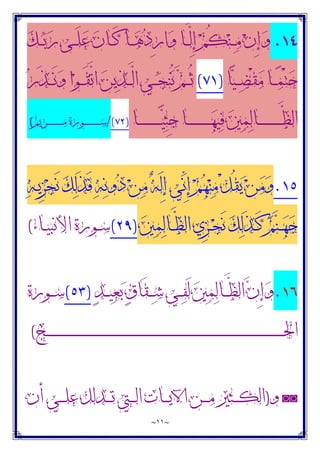 ١٤. وَإِن مِّنكُمْ إِلَّا وَارِدُهَا كَانَ عَلَىٰ رَبِّكَ
حَتْمًا مَّقْضِيًّا (٧١) ثُمَّ نُنَجِّي الَّذِينَ اتَّقَوا وَّنَذَرُ
الظَّالِمِينَ فِيهَا جِثِيًّا (٧٢)/سورة مريم)
١٥. وَمَن يَقُلْ مِنْهُمْ إِنِّي إِلَٰهٌ مِّن دُونِهِ فَذَٰلِكَ نَجْزِيهِ
جَهَنَّمَ كَذَٰلِكَ نَجْزِي الظَّالِمِينَ (٢٩) سورة الأنبياء)
١٦. وَإِنَّ الظَّالِمِينَ لَفِي شِقَاقٍ بَعِيدٍ (٥٣) سورة
الحج)
◘◘ و(الكثير من الآيات التي تدلك على أن
~١١~